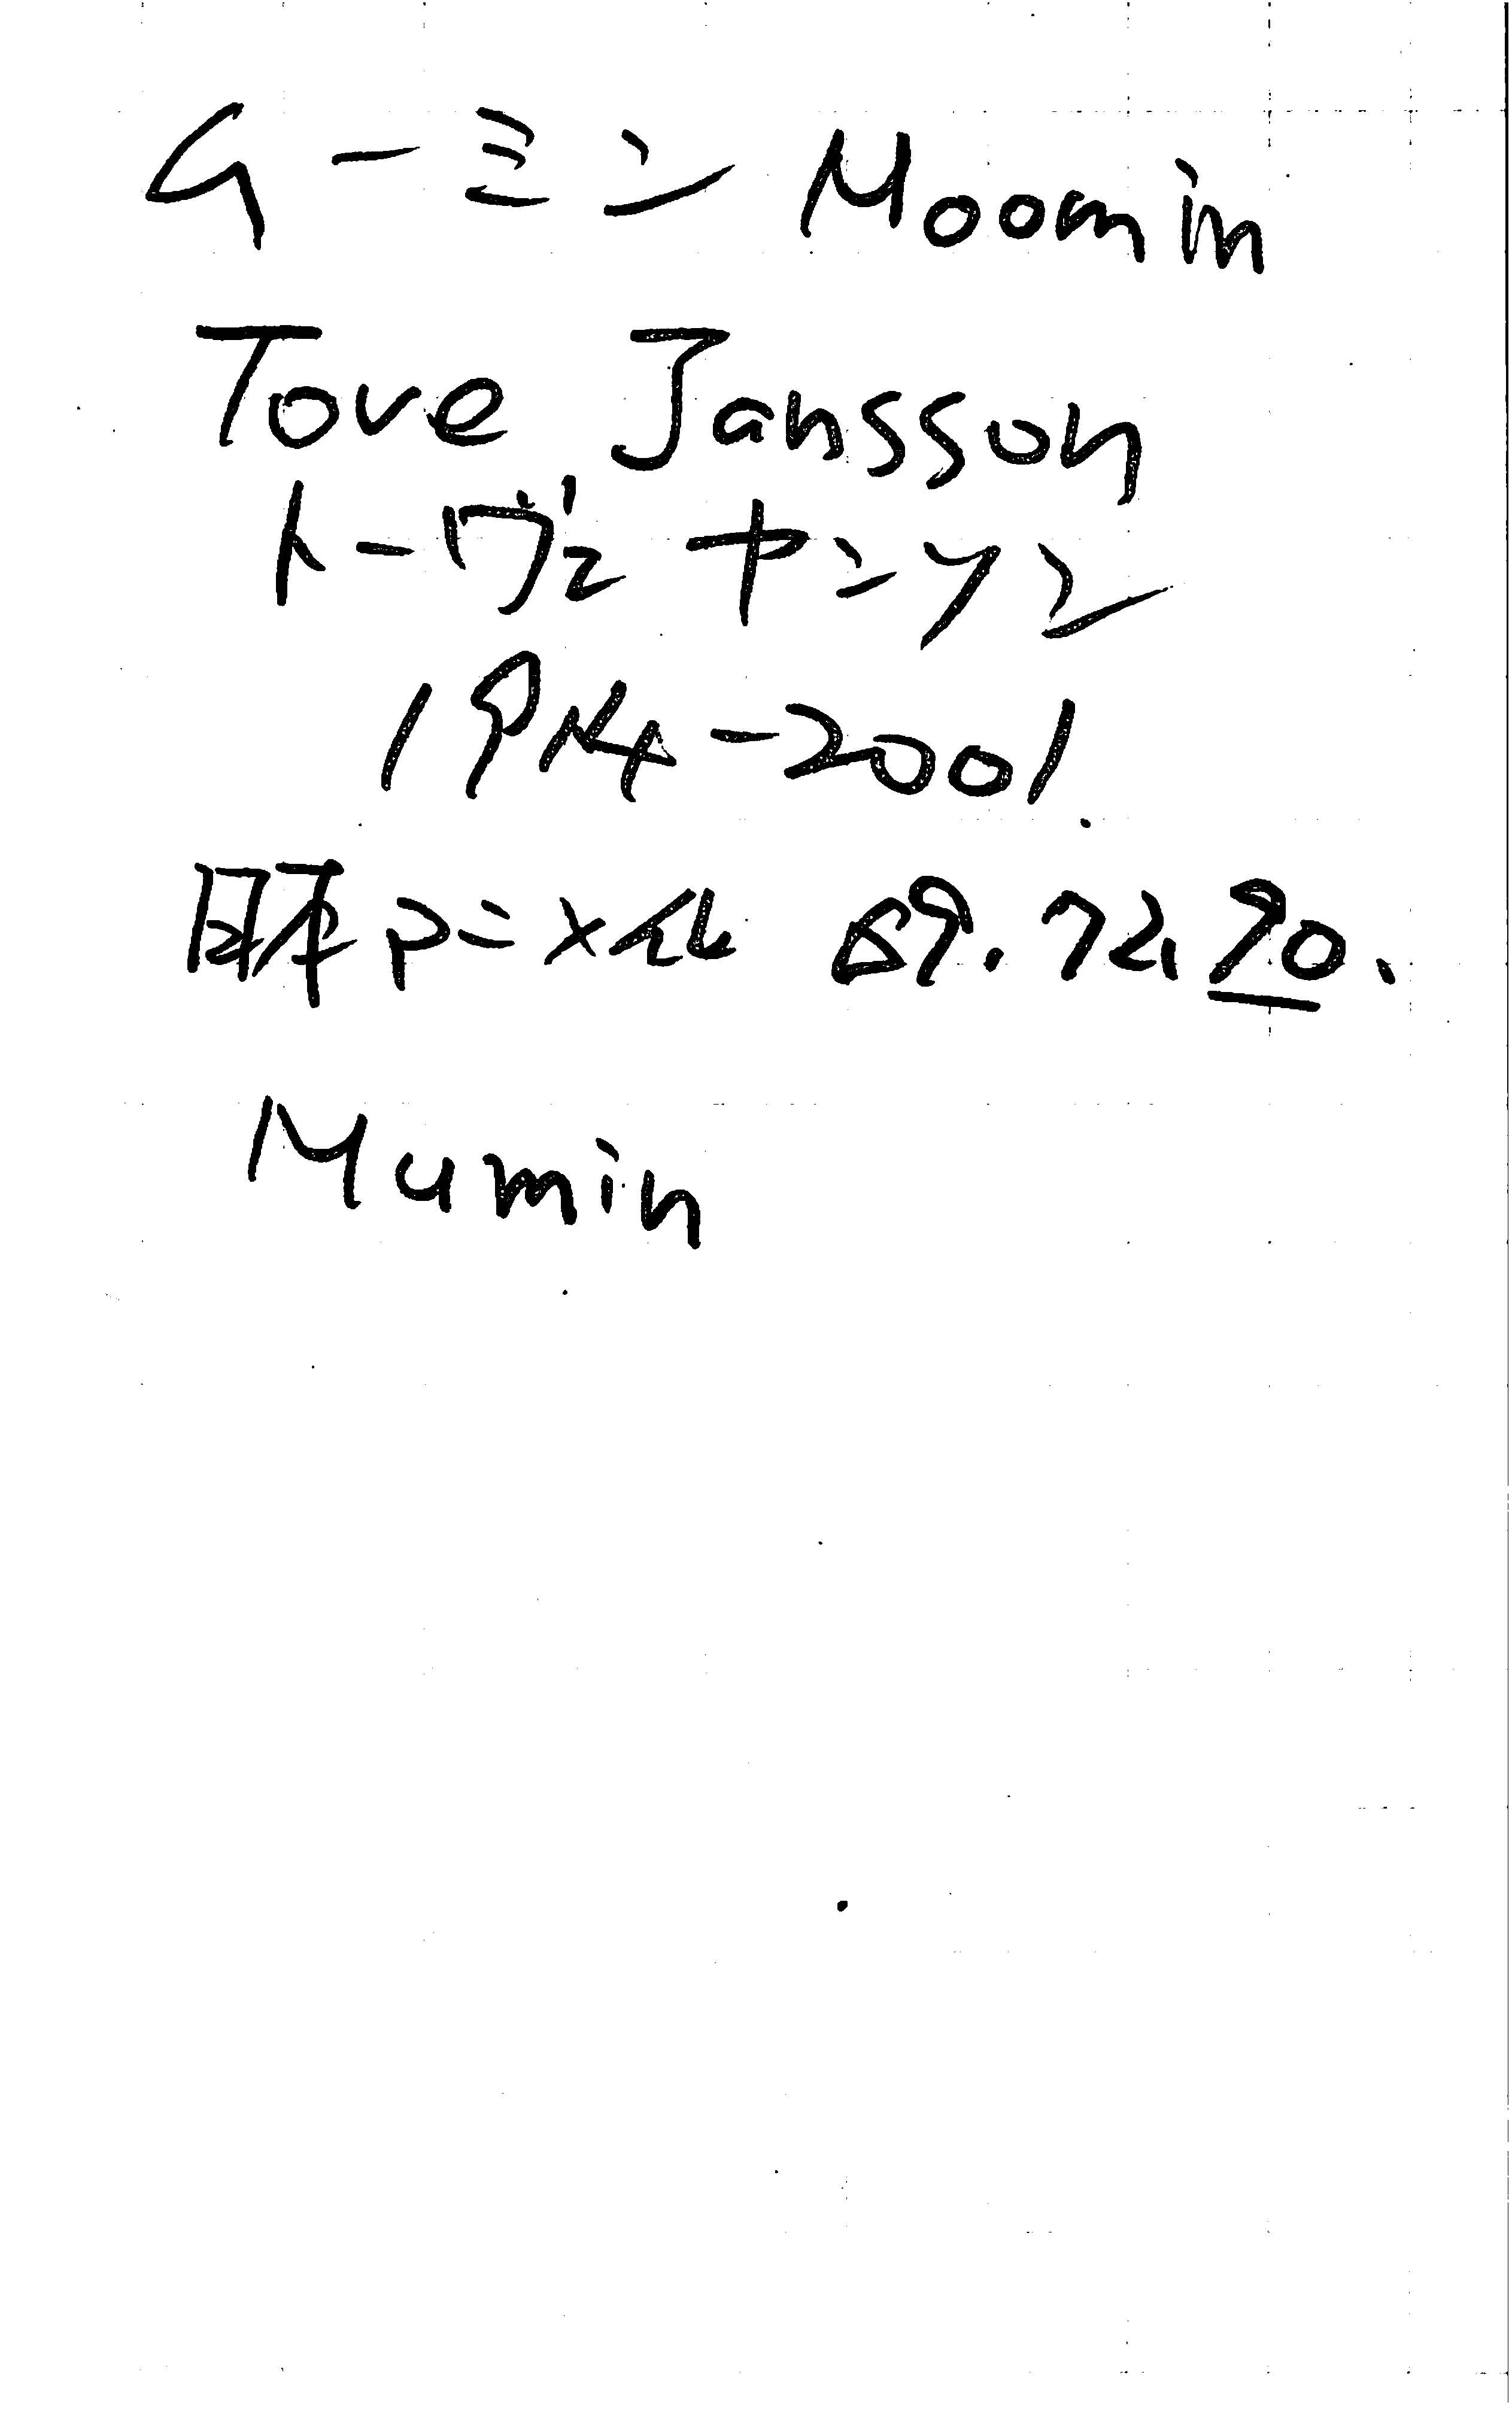 ムーミン Moomin
Tove Jansson
トーヴェ ヤンソン
1914-2001.
日本アニメ化 69. 72, 90.
Mumin